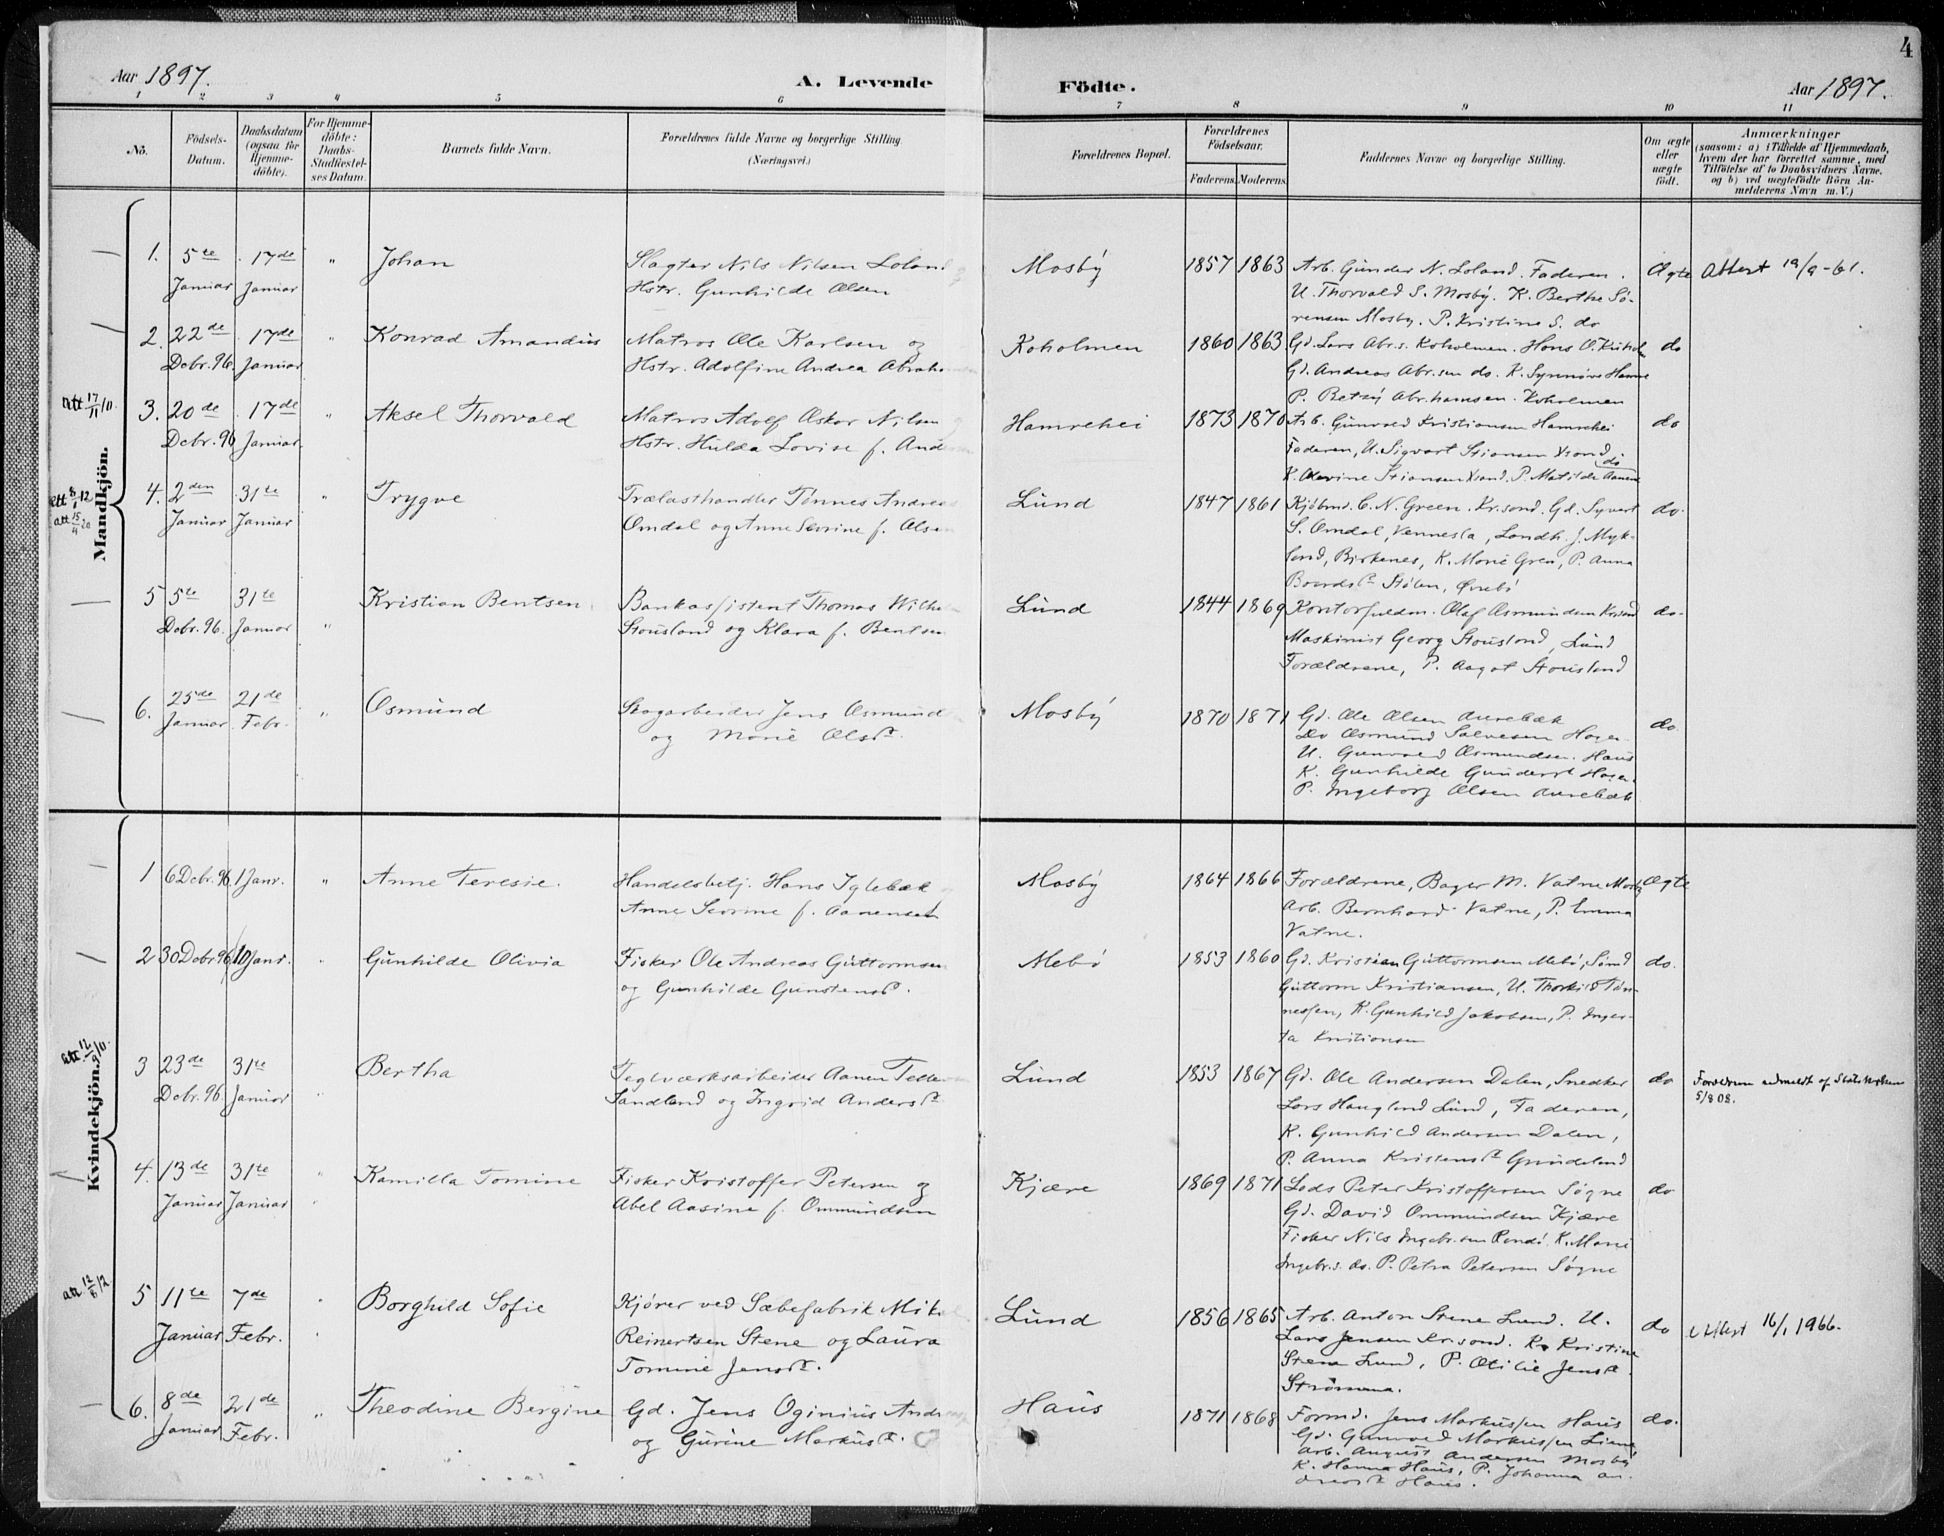 4
Aar 1897.
A. Levende
Födte.
Aar 1897.
1 2 3 4 5 6 7 8 9 10 11
No.
Födsels-Datum.
Daabsdatum (ogsaa for Hjemme-döbte).
For Hjemme-döbte: Daabs-Stadfæstel-ses Datum.
Barnets fulde Navn.
Forældrenes fulde Navne og borgerlige Stilling (Næringsvei.)
Forældrenes Bopæl.
Forældrenes Födselsaar.
Faderens. Moderens.
Faddernes Navne og borgerlige Stilling.
Om ægte eller uægte födt.
Anmærkninger
(saasom: a) i Tilfælde af Hjemmedaab,
hvem der har forrettet samme, med
Tilföielse af to Daabsvidners Navne.
og b) ved uægtefödte Börn An-
melderens Navn m. V.)
Mandkjön.
1. 5te Januar 17de Januar " Johan
Slagter Nils Nilsen Loland
Hstr. Gunhilde Olsen
Mosby 1857 1863
Arb. Gunder N. Loland. Faderen.
U. Thorvald S. Mosby. K. Berthe Sö-
rensen Mosby. P. Kristine S. do
Ægte Attest 19/9-61.
2. 22de Debr. 96. 17de Januar " Konrad Amandus
Matros Ole Karlsen og
Hstr. Adolfine Andrea Abraha
Koholmen 1860 1863
Gd. Lars Abr.s. Koholmen. Hans O.
Gd. Andreas Abr.sen do. K. Synnöve Hamre
P. Betsy Abrahamsen. Koholmen
do
Att 17/11/11.
3. 20de Debr. 96 17de Januar " Aksel Thorvald
Matros Adolf Oskar Nilsen
Hstr. Hulda Lovise f. And
Hamrehei 1873 1870
Arb. Gunvald Kristiansen Hamrehei
Faderen, U. Sigvart Stiansen Xsand
K. Olevine Stiansen Xsand. P. Matilde Aanens do
do
4. 2den Januar 31te Januar " Trygve
Trælasthandler Tönnes Andreas
Omdal og Anne Severine f. Olsen
Lund 1847 1861
Kjöbmd. C. N. Green. Kr.sand. Gd. Syvert
S. Omdal, Vennesla, Landh. J. Myk-
land, Birkenes, K. Marie Green, P. Anna
Bordsd. Stölen, Övrebö
do.
5 5te Debr. 96. 31te Januar " Kristian Bentsen
Bankassistent Thomas Wilhe
Stousland og Klara f. Bentsen
Lund 1844 1869
Kontorfuldm. Olaf Osmundsen Krsand
Maskinist Georg Stousland, Lund
Forældrene, P. Aagot Stousland
do.
6. 25de Januar 21de Febr. " Osmund
Skogarbeider Jens Osmund
og Marie Olsd.
Mosby 1870 1871
Gd. Ole Olsen Aurebæk
Do Osmund Salvesen
U. Gunvald Osmundsen. Haus
K. Gunhilde Gundersd
P. Ingeborg Olsen Aurebæk
do
Kvindekjön.
1 6 Debr. 96 1 Janr. " Anne Teresie.
Handelsbetj. Hans Iglebæk
Anne Severine f. Aanensen
Mosby 1864 1866
Forældrene, Bager M. Vatne Mosby
Arb. Bernhard Vatne, P. Emma
Vatne.
Ægte
2 30 Debr. 96 10 Janr. " Gunhilde Olivia
Fisker Ole Andreas Guttormsen
og Gunhilde Gunstensd.
Mebö 1853 1860
Gd. Kristian Guttormsen Mebö, Smed
Guttorm Kristiansen, U. Thorkild Tön-
nessen, K. Gunhild Jakobsen, P. Inger-
ta Kristiansen
do.
3 23de Debr. 96. 31te Januar " Bertha
Teglværksarbeider Aanen Telle
Sandland og Ingrid Andersd
Lund 1853 1867
Gd. Ole Andersen Dalen, Snedker
Lars Haugland Lund, Faderen,
K. Gunhild Andersen Dalen,
P. Anna Kristensd Grundeland
do
Forældrene udmeldt af Statskirken
5/8 08.
4. 13de Januar 31te Januar " Kamilla Tomine
Fisker Kristoffer Petersen og
Abel Aasine f. Ommundsen
Kjære 1869 1871
Lods Peter Kristoffersen Søgne
Gd. David Ommundsen Kjære
Fisker Nils Ingebr.sen Randö. K. Marie
Ingebr.s. do. P. Petra Petersen Søgne
do
5 11te Januar 7de Febr. Borghild Sofie
Kjörer ved Sæbefabrik Mik
Reinertsen Stene og Laura
Tomine Jensd.
Lund 1856 1865
Arb. Anton Stene Lund. U.
Lars Jensen Kr.sand. K. Kristine
Stene Lund, P. Otilie Jensd.
Strömme.
do Attest 16/1 1966.
6. 8de Januar 21de Febr. " Theodine Bergine
Gd. Jens Oginius Andr
og Gurine Markusd.
Haus 1871 1868
Formd. Jens Markussen Haus
Gd. Gunvald Markussen Liene
Arb. August Andersen Mosby
K. Hanna Haus, P. Johanna An-
dreasd Haus.
do.